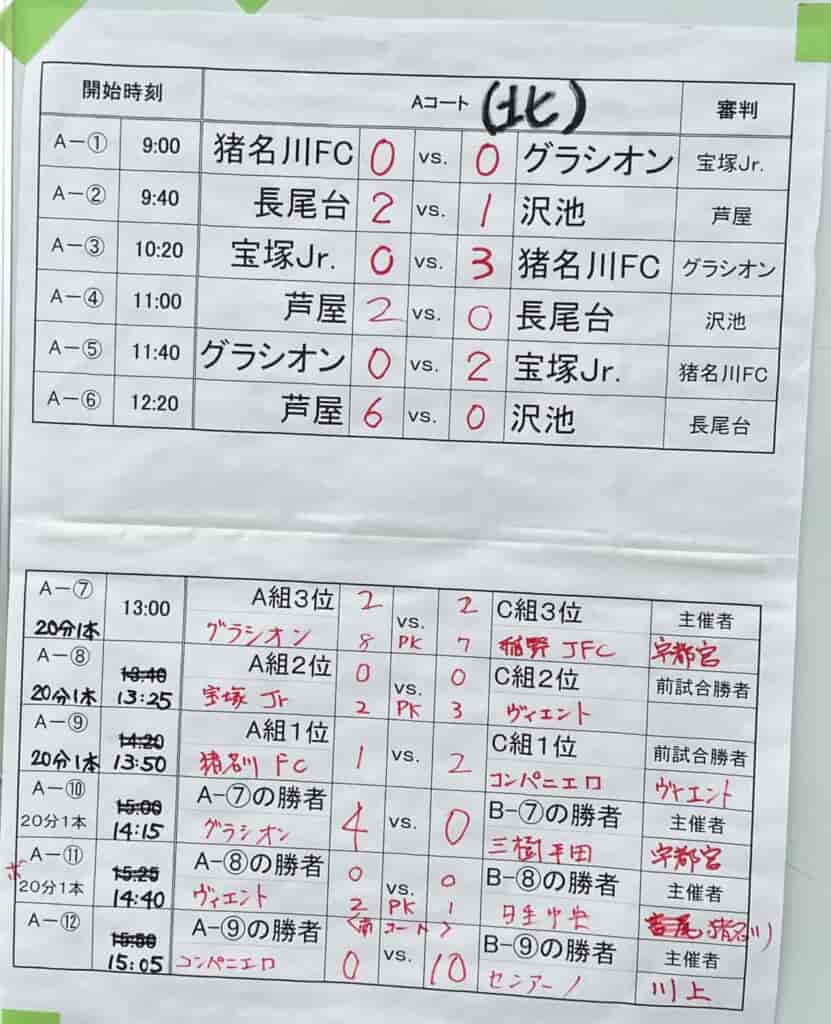 開始時刻 Aコート (北) 審判
A-① 9:00 猪名川FC 0 vs. 0 グラシオン 宝塚Jr.
A-② 9:40 長尾台 2 vs. 1 沢池 芦屋
A-③ 10:20 宝塚Jr. 0 vs. 3 猪名川FC グラシオン
A-④ 11:00 芦屋 2 vs. 0 長尾台 沢池
A-⑤ 11:40 グラシオン 0 vs. 2 宝塚Jr. 猪名川FC
A-⑥ 12:20 芦屋 6 vs. 0 沢池 長尾台
A-⑦ 13:00 A組3位 2 vs. 2 C組3位 主催者
20分1本 グラシオン 8 PK 7 稲野 JFC 宇都宮
A-⑧ 13:40 A組2位 0 vs. 0 C組2位 前試合勝者
20分1本 13:25 宝塚 Jr 2 PK 3 ヴィエント
A-⑨ 14:20 A組1位 1 vs. 2 C組1位 前試合勝者
20分1本 13:50 猪名川 FC コンパニエロ ヴィエント
A-⑩ 15:00 A-⑦の勝者 4 vs. 0 B-⑦の勝者 主催者
20分1本 14:15 グラシオン 三樹平田 宇都宮
A-⑪ 15:25 A-⑧の勝者 0 vs. 0 B-⑧の勝者 主催者
20分1本 14:40 ヴィエント 2 PK 1 日生中央 猪名川)
A-⑫ 15:50 A-⑨の勝者 <南コート> B-⑨の勝者 主催者
15:05 コンパニエロ 0 vs. 10 センアーノ 川上